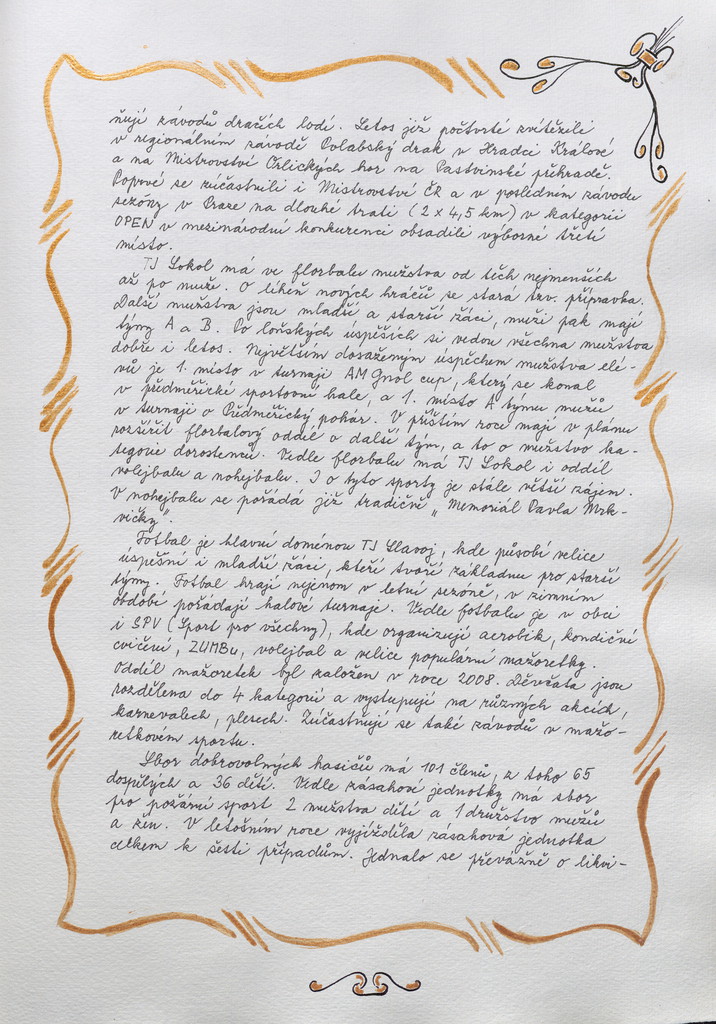 ňují závodů dračích lodí. Letos již počtvrté zvítězili
v regionálním závodě Polabský drak v Hradci Králové
a na Mistrovství Orlických hor na Pastvinské přehradě.
Poprvé se zúčastnili i Mistrovství ČR a v posledním závodu
sezóny v Praze na dlouhé trati (2 x 4,5 km) v kategorii
OPEN v mezinárodní konkurenci obsadili výborné třetí
místo.
TJ Sokol má ve florbalu mužstva od těch nejmenších
až po muže. O líheň nových hráčů se stará tzv. přípravka.
Další mužstva jsou mladší a starší žáci, muži pak mají
týmy A a B. Po loňských úspěších si vedou všechna mužstva
dobře i letos. Největším dosaženým úspěchem mužstva elé-
vů je 1. místo v turnaji AM Gnol cup, který se konal
v předměřické sportovní hale, a 1. místo A týmu mužů
v turnaji o Předměřický pohár. V příštím roce mají v plánu
rozšířit florbalový oddíl o další tým, a to o mužstvo ka-
tegorie dorostenců. Vedle florbalu má TJ Sokol i oddíl
volejbalu a nohejbalu. I o tyto sporty je stále větší zájem.
V nohejbalu se pořádá již tradiční „Memoriál Pavla Mrk-
vičky".
Fotbal je hlavní doménou TJ Slavoj, kde působí velice
úspěšní i mladší žáci, kteří tvoří základnu pro starší
týmy. Fotbal hrají nejenom v letní sezóně, v zimním
období pořádají halové turnaje. Vedle fotbalu je v obci
i SPV (Sport pro všechny), kde organizují aerobik, kondiční
cvičení, ZUMBu, volejbal a velice populární mažoretky.
Oddíl mažoretek byl založen v roce 2008. Děvčata jsou
rozdělena do 4 kategorií a vystupují na různých akcích,
karnevalech, plesech. Zúčastňují se také závodů v mažo-
retkovém sportu.
Sbor dobrovolných hasičů má 101 členů, z toho 65
dospělých a 36 dětí. Vedle zásahové jednotky má sbor
pro požární sport 2 mužstva dětí a 1 družstvo mužů
a žen. V letošním roce vyjížděla zásahová jednotka
celkem k šesti případům. Jednalo se převážně o likvi-